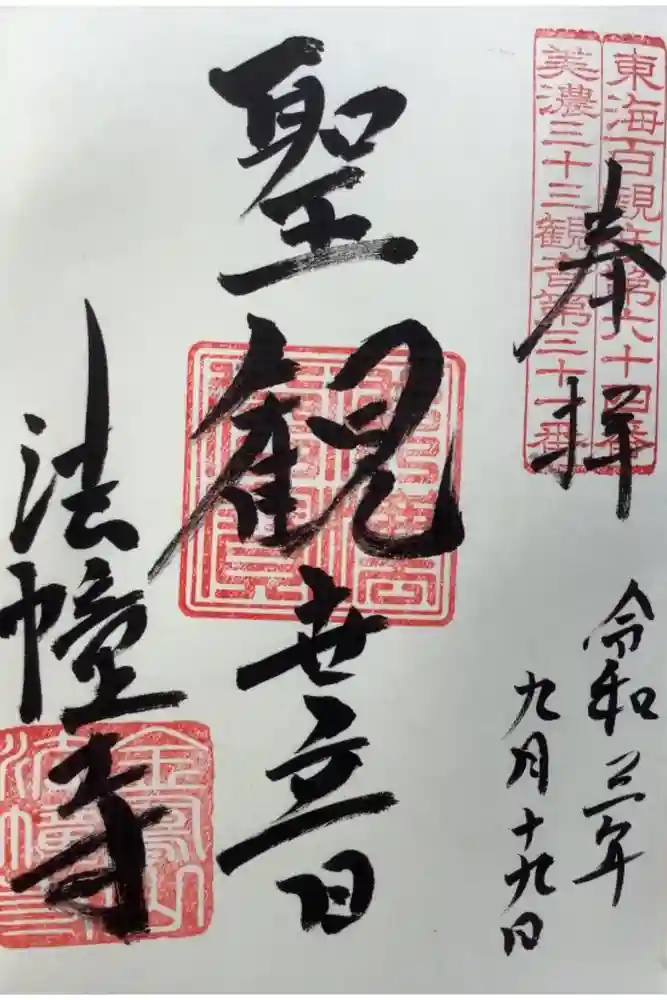 東海百観音第六十四番
美濃三十三観音第三十一番
奉拝
令和三年
九月十九日
聖観世音
法幢寺
金鳳山
法幢寺